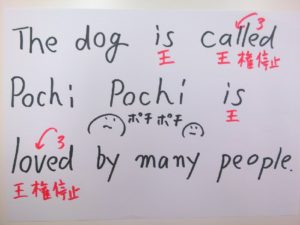 The dog is called
3
王 王 権停止
Pochi Pochi is
ポチ ポチ 王
3
loved by many people.
王 権停止